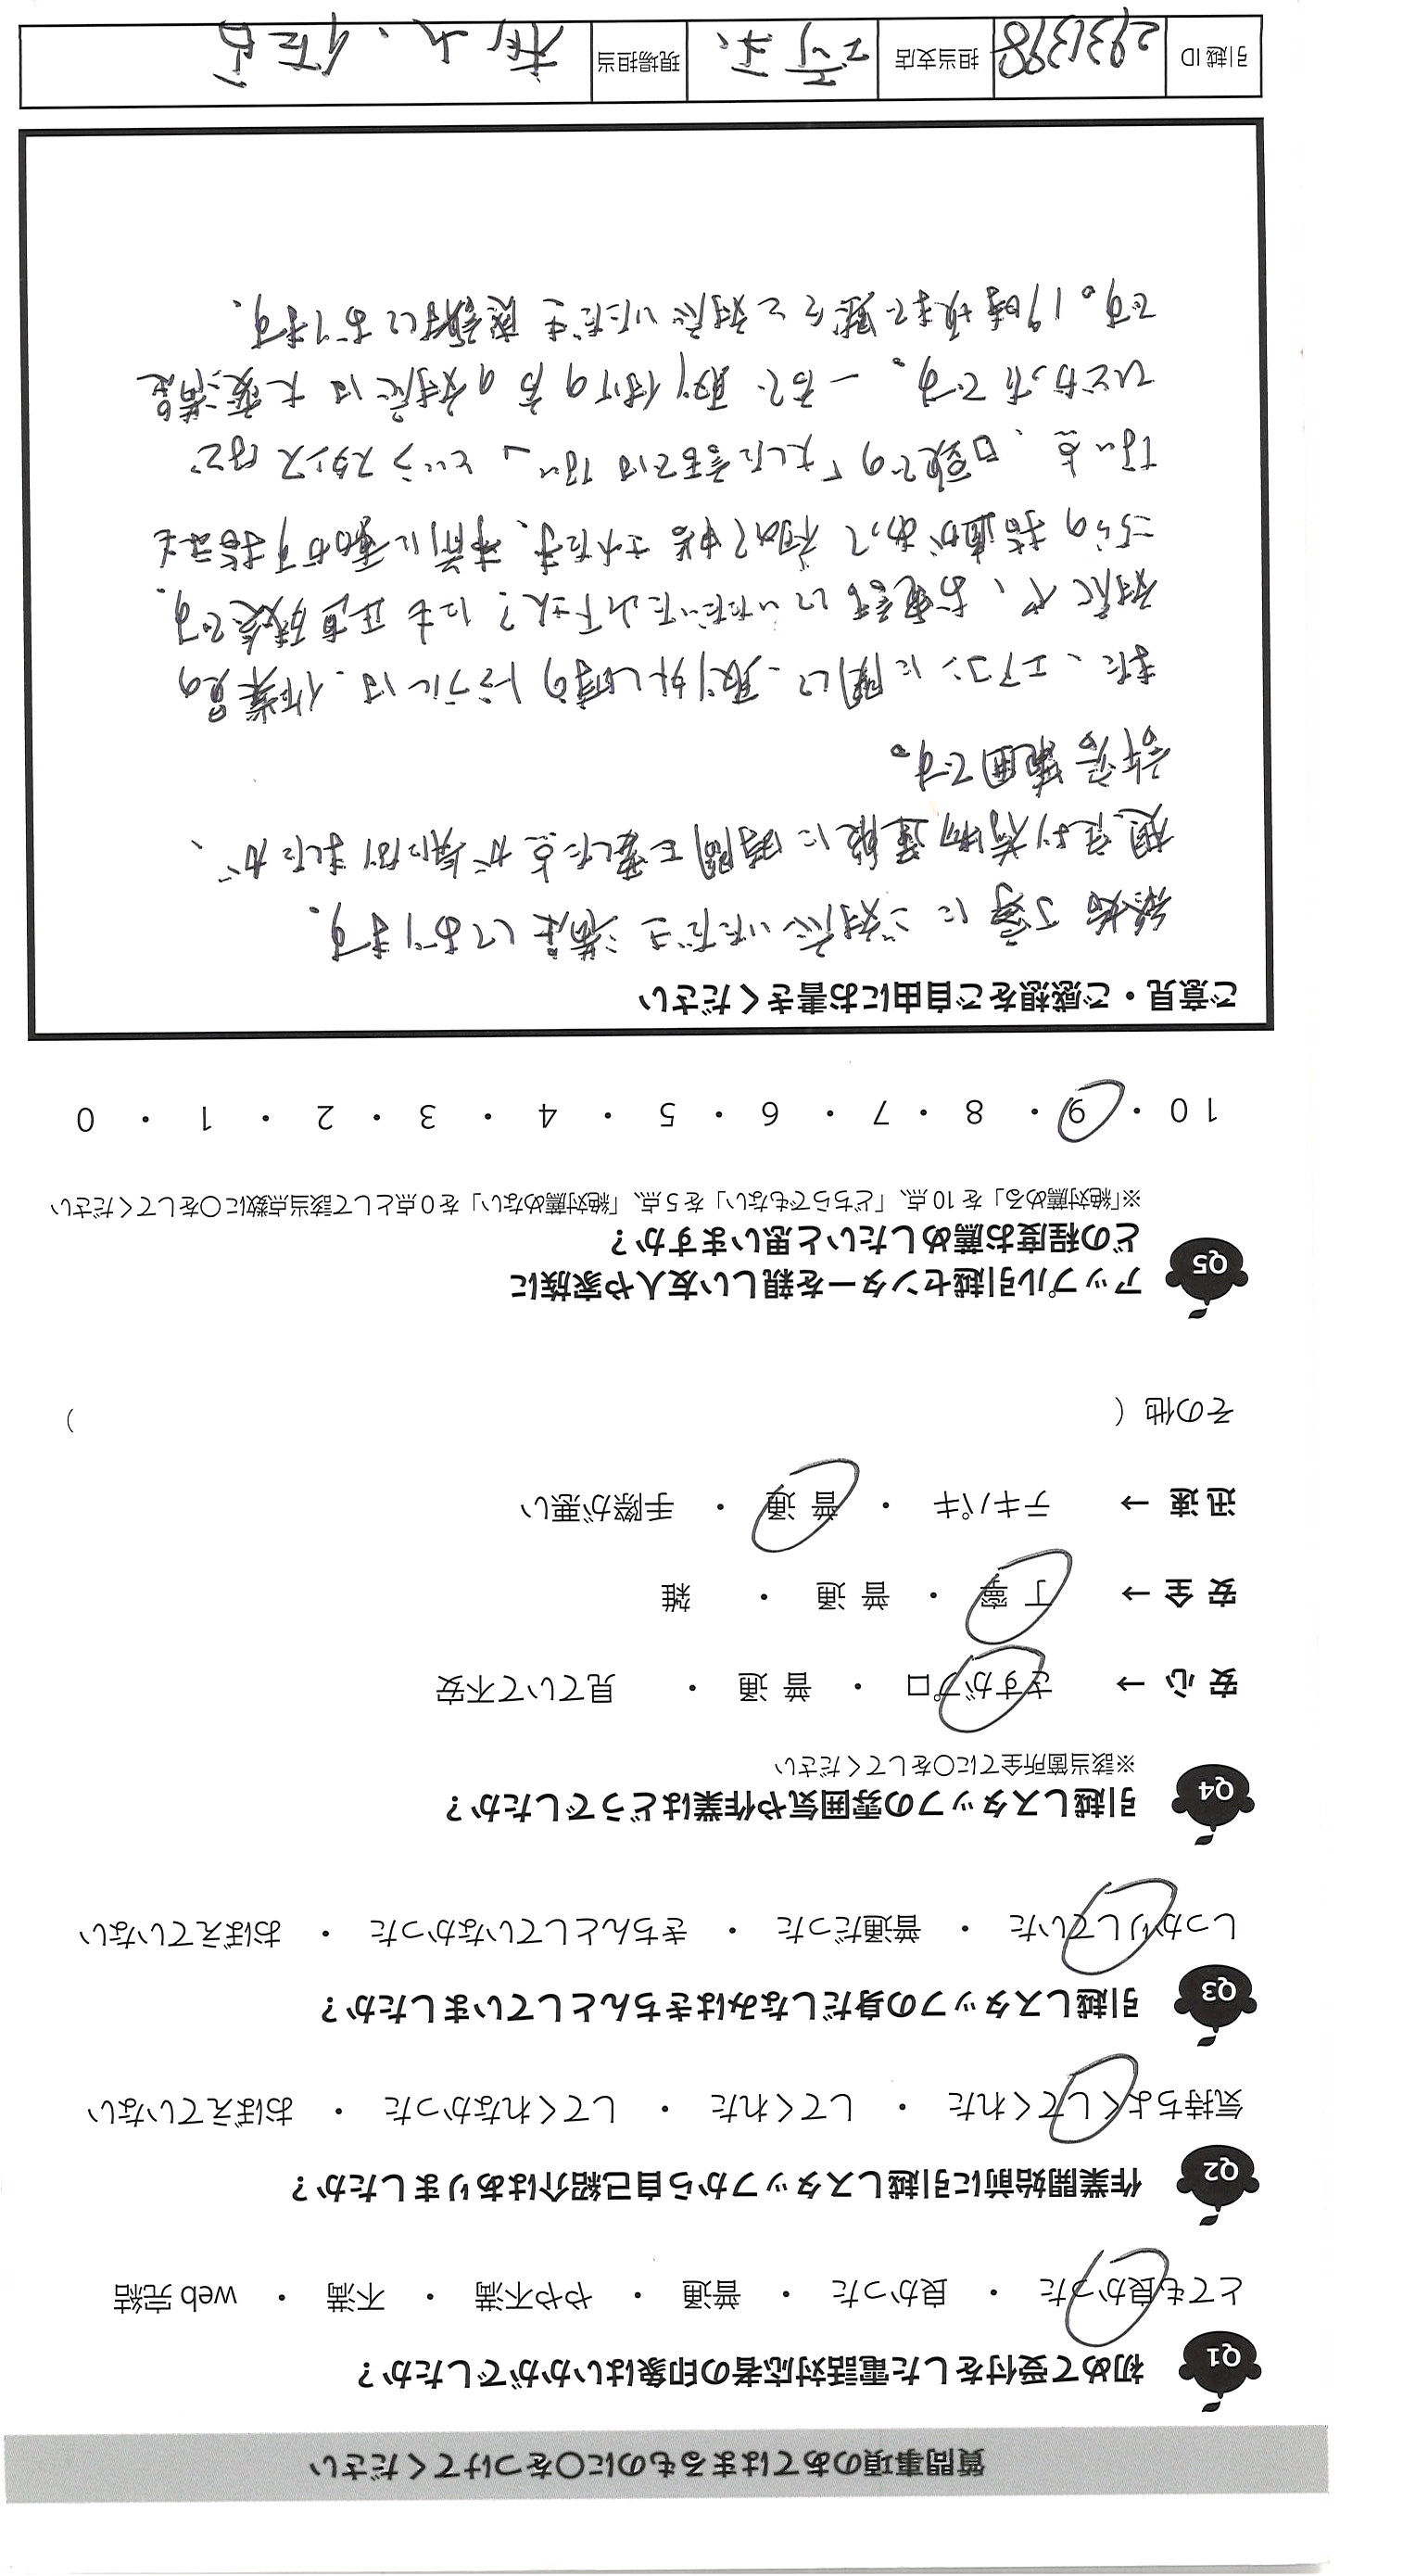 質問事項のあてはまるものに○をつけてください
Q1 初めて受付をした電話対応者の印象はいかがでしたか？
とても良かった ・ 良かった ・ 普通 ・ やや不満 ・ 不満 ・ web 完結
Q2 作業開始前に引越しスタッフから自己紹介はありましたか？
気持ちよくしてくれた ・ してくれた ・ してくれなかった ・ おぼえていない
Q3 引越しスタッフの身だしなみはきちんとしていましたか？
しっかりしていた ・ 普通だった ・ きちんとしていなかった ・ おぼえていない
Q4 引越しスタッフの雰囲気や作業はどうでしたか？
※該当箇所全てに○をしてください
安 心 → さすがプロ ・ 普 通 ・ 見ていて不安
安 全 → 丁 寧 ・ 普 通 ・ 雑
迅 速 → テキパキ ・ 普 通 ・ 手際が悪い
その他（ ）
Q5 アップル引越センターを親しい友人や家族に
どの程度お薦めしたいと思いますか？
※「絶対薦める」を 10 点、「どちらでもない」を 5 点、「絶対薦めない」を 0 点として該当点数に○をしてください
10 ・ 9 ・ 8 ・ 7 ・ 6 ・ 5 ・ 4 ・ 3 ・ 2 ・ 1 ・ 0
ご意見・ご感想をご自由にお書きください
終始丁寧にご対応いただき満足しております。
想定より荷物運搬に時間を要した点が気になりましたが、
許容範囲です。
また、エアコンに関し、取り外し時のトラブルは、作業員の
対応や、お電話していただいた山下さん？にも正直残念です。
こちらの指摘があって初めて申告された事、事前に裏付け指示も
ない点、口頭での「大した話ではない」というスタンスなど
ひどかったです。一方で取り付けの方の対応は大変満足
です。19時頃まで黙々と対応いただき感謝しております。
引越 ID 2931398 担当支店 現場担当